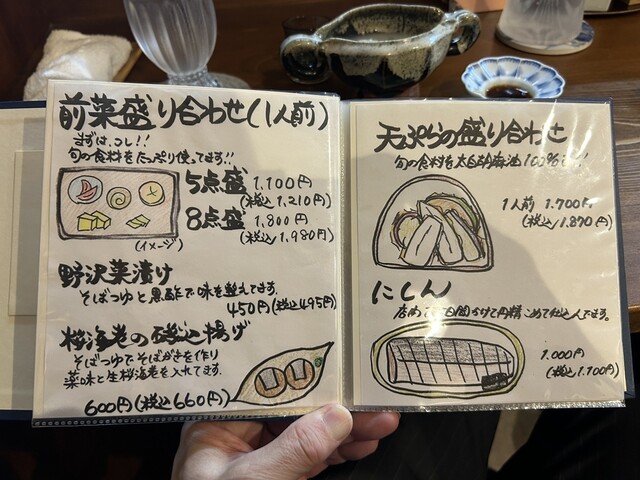 前菜盛り合わせ(1人前)
まずはコレ!!
旬の食料をたっぷり使ってます!!
5点盛 1,100円
(税込1,210円)
8点盛 1,800円
(税込1,980円)
(イメージ)
野沢菜漬け
そばつゆと黒酢で味を整えてます。
450円(税込495円)
桜海老の磯辺揚げ
そばつゆでそばがきを作り
薬味と生桜海老を入れてます。
600円(税込660円)
天ぷらの盛り合わせ
旬の食料を太白胡麻油100%
1人前 1.700円
(税込1,870円)
にしん
かけて丹精こめて仕込んでます。
1.000円
(税込1,100円)